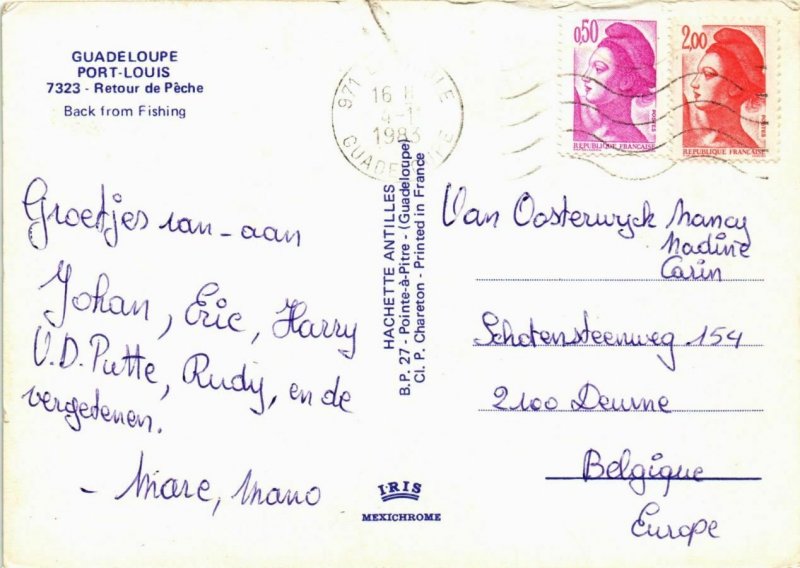 GUADELOUPE
PORT-LOUIS
7323 - Retour de Pèche
Back from Fishing
971
16 H
4-1
1983
GUADELOUPE
0,50
POSTES
REPUBLIQUE FRANÇAISE
2,00
POSTES
REPUBLIQUE FRANÇAISE
Groetjes van - aan
Johan, Eric, Harry
V.D. Putte, Rudy, en de
vergetenen.
- Marc, Mano
HACHETTE ANTILLES
B.P. 27 - Pointe-à-Pitre - (Guadeloupe)
Cl. P. Chareton - Printed in France
IRIS
MEXICHROME
Van Oosterwyck Nancy
Nadine
Carin
Schotensteenweg 154
2100 Deurne
Belgique
Europe